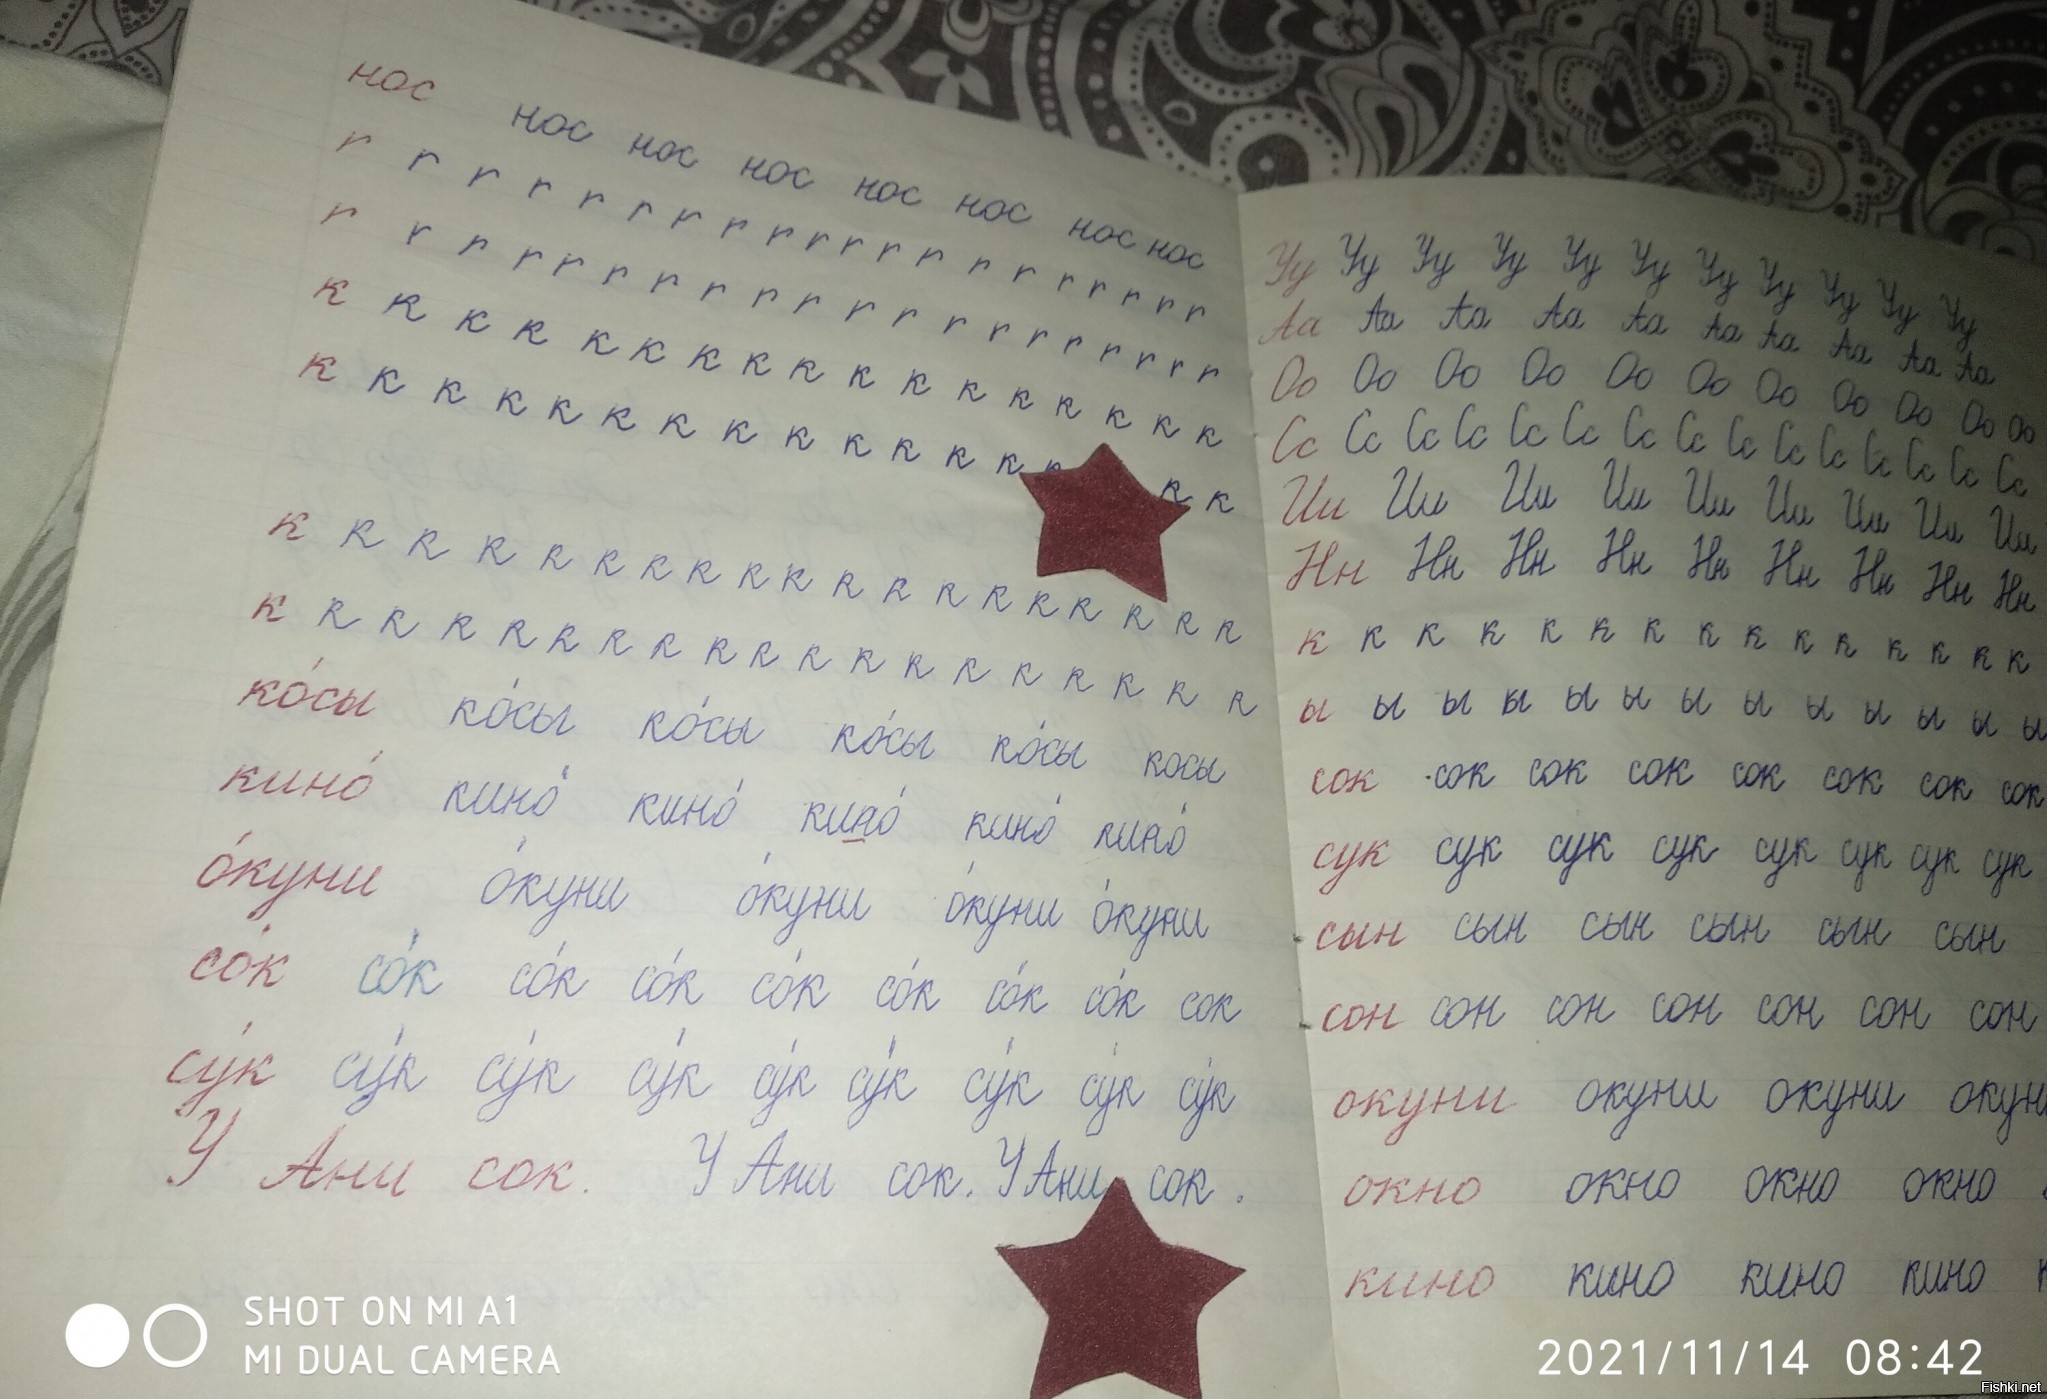 нос нос нос нос нос нос нос нос
г г г г г г г г г г г г г г г г г г г г
г г г г г г г г г г г г г г г г г г г г
к к к к к к к к к к к к к к к к к
к к к к к к к к к к к к к к к к
к к к к к к к к к к к к к к к к к к к
к к к к к к к к к к к к к к к к к к к
ко́сы ко́сы ко́сы ко́сы ко́сы косы
кино́ кино́ кино́ кино́ кино́ кино́
о́куни о́куни о́куни о́куни о́куни
со́к со́к со́к со́к со́к со́к со́к со́к сок
су́к су́к су́к су́к су́к су́к су́к су́к су́к
У Ани сок. У Ани сок. У Ани сок.
Уу Уу Уу Уу Уу Уу Уу Уу Уу Уу Уу
Аа Аа Аа Аа Аа Аа Аа Аа Аа Аа
Оо Оо Оо Оо Оо Оо Оо Оо Оо Оо Оо
Сс Сс Сс Сс Сс Сс Сс Сс Сс Сс Сс Сс Сс Сс Сс
Ии Ии Ии Ии Ии Ии Ии Ии Ии
Нн Нн Нн Нн Нн Нн Нн Нн Нн
к к к к к к к к к к к к к к к
ы ы ы ы ы ы ы ы ы ы ы ы ы
сок сок сок сок сок сок сок сок
сук сук сук сук сук сук сук сук
сын сын сын сын сын сын
сон сон сон сон сон сон сон
окуни окуни окуни
окно окно окно окно
кино кино кино кино
SHOT ON MI A1
MI DUAL CAMERA
2021/11/14 08:42
Fishki.net